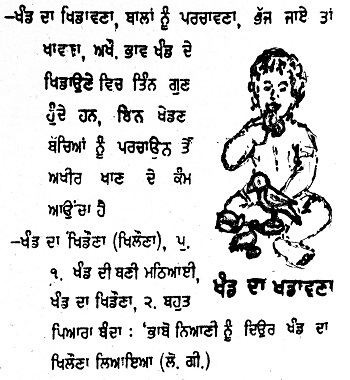 –ਖੰਡ ਦਾ ਖਿਡਾਵਣਾ, ਬਾਲਾਂ ਨੂੰ ਪਰਚਾਵਣਾ, ਭੱਜ ਜਾਏ ਤਾਂ
ਖਾਵਣਾ, ਅਖੌ. ਭਾਵ ਖੰਡ ਦੇ
ਖਿਡਾਉਣੇ ਵਿਚ ਤਿੰਨ ਗੁਣ
ਹੁੰਦੇ ਹਨ, ਇਨ ਖੇਡਣ
ਬੱਚਿਆਂ ਨੂੰ ਪਰਚਾਉਨ ਤੋਂ
ਅਖੀਰ ਖਾਣ ਦੇ ਕੰਮ
ਆਉਂਦਾ ਹੈ
–ਖੰਡ ਦਾ ਖਿਡੌਣਾ (ਖਿਲੌਣਾ), ਪੁ.
੧. ਖੰਡ ਦੀ ਬਣੀ ਮਠਿਆਈ,
ਖੰਡ ਦਾ ਖਿਡੌਣਾ, ੨. ਬਹੁਤ
ਪਿਆਰਾ ਬੰਦਾ : 'ਭਾਬੋ ਨਿਆਣੀ ਨੂੰ ਦਿਉਰ ਖੰਡ ਦਾ
ਖਿਲੌਣਾ ਲਿਆਇਆ (ਲੋ. ਗੀ.)
ਖੰਡ ਦਾ ਖਡਾਵਣਾ